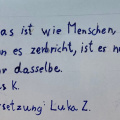 as ist wie Menschen,
n es zerbricht, ist es n
r dasselbe.
s K.
rsetzung: Luka Z.